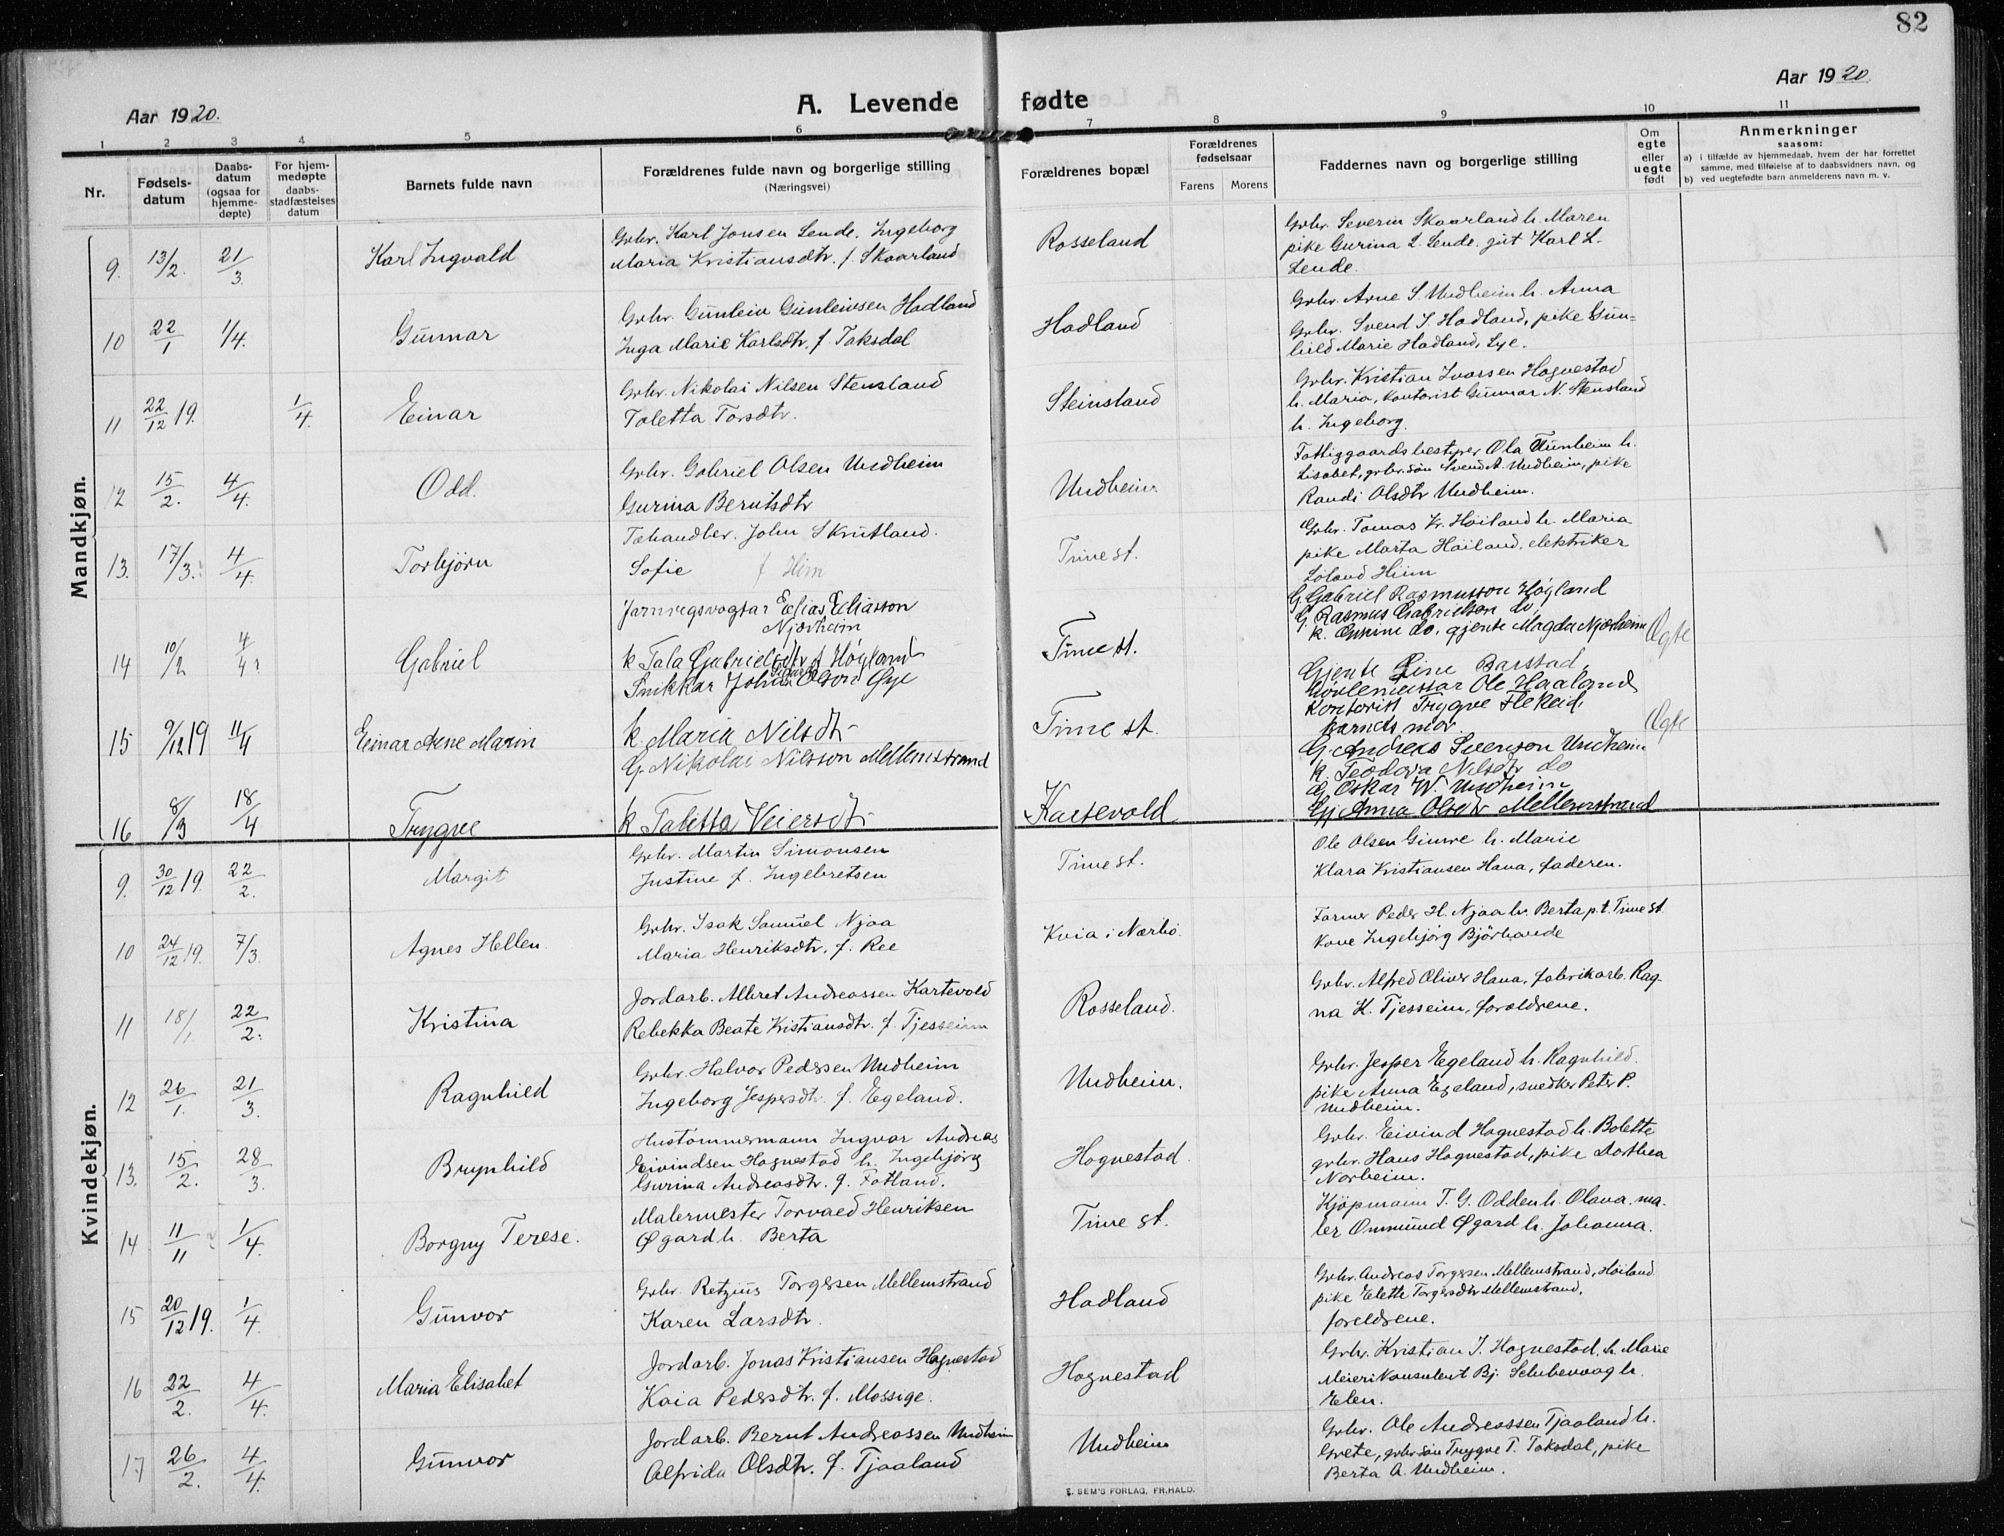 82
Aar 1920.
A. Levende fødte
Aar 1920.
1 2 3 4 5 6 7 8 9 10 11
Nr.
Fødsels-
datum
Daabs-
datum
(ogsaa for
hjemme-
døpte)
For hjem-
medøpte
daabs-
stadfæstelses
datum
Barnets fulde navn
Forældrenes fulde navn og borgerlige stilling
(Næringsvei)
Forældrenes bopæl
Forældrenes
fødselsaar
Farens Morens
Faddernes navn og borgerlige stilling
Om
egte
eller
uegte
født
Anmerkninger
saasom:
a) i tilfælde av hjemmedaab, hvem der har forrettet
samme, med tilføielse af to daabsvidners navn, og
b) ved uegtefødte barn anmelderens navn m. v.
Mandkjøn.
9. 13/2. 21/3 Karl Ingvald
Grbr. Karl Jonsen Lende. Ingeborg
Maria Kristiansdtr. f. Skaarland
Rosseland
Grbr. Severin Skaarland h. Maren
pike Gurina L. Lende. gut Karl L.
Lende.
10 22/1 1/4. Gunnar
Grbr. Gunleiv Gunleivssen Hadland
Inga Marie Karlsdtr. f. Taksdal
Hadland
Grbr. Arne S. Undheim h. Anna
Grbr. Svend S. Hadland, pike Gun=
hild Marie Hadland, Lye.
11 22/12 19. 1/4. Einar
Grbr. Nikolai Nilsen Stensland
Taletta Torsdtr.
Steinsland
Grbr. Kristian Ivarsen Hognestad
h. Maria, kontorist Gunnar N. Stensland
h. Ingeborg.
12 15/2. 4/4. Odd.
Grbr. Gabriel Olsen Undheim
Gurina Berntsdtr
Undheim
Fattiggaardsbestyrer Ola Tunheim h.
Lisabet, grbr.søn Svend A. Undheim, pike
Randi Olsdtr Undheim.
13. 17/3. 4/4. Torbjørn
John Skrutland.
Sofie f. Him
Time st.
Grbr. Tomas Kr. Høiland h. Maria
pike Marta Høiland, elektriker
Loland Hiim
14 10/2 4/4 Gabriel
Jarnvegsvogtar Elias Eliasson
Njærheim
k Tala Gabrielsdtr f Høgland
Time st.
G. Gabriel Rasmusson Høgland
G. Rasmus Gabrielson do,
k. do. gjente Magda Njærheim
Ogte
15 9/12 19 11/4 Einar Arne Marin
Snikkar Johan Olson Øye
k. Maria Nilsdtr
Time st.
Gjente Line Barstad,
Høvlemeistar Ole Haaland
Kontorist Trygve Flekeid,
barnets mor.
Ogte
16 8/3 18/4 Trygve
G. Nikolai Nilsson Mellemstrand
k Taletta Veiersdtr
Kartevold
G. Andreas Svenson Undheim
k. Teodora Nilsdtr do
G Oskar W. Undheim
Gj Anna Olsdtr Mellemstrand
Kvindekjøn.
9. 30/12 19. 22/2. Margit
Grbr. Martin Simonsen
Justine f. Ingebretsen
Time st.
Ole Olsen Gimre h. Marie
Klara Kristiansen Hana, faderen.
10 24/12 19. 7/3. Agnes Hellen.
Grbr. Isak Samuel Njaa
Maria Henriksdtr. f. Ree
Kvia i Nærbø.
Farmer Peder H. Njaa h. Berta p.t. Time st.
Kone Ingebjørg Bjørlande
11 18/1. 22/2. Kristina
Jordarb. Albret Andreassen Kartevold
Rebekka Beate Kristiansdtr. f. Tjesseim
Rosseland.
Grbr. Alfred Oliver Hana, fabrikarb. Rag-
na K. Tjesseim, forældrene.
12 26/1. 21/3. Ragnhild
Grbr. Halvor Pedersen Undheim
Ingeborg Jespersdtr. f. Egeland.
Undheim.
Grbr. Jesper Egeland h. Ragnhild.
pike Anna Egeland, snedker Peter P.
Undheim.
13. 15/2. 28/3. Brynhild
Hustømmermann Ingvar Andreas
Eivindsen Hognestad h. Ingebjørg
Gurina Andreasdtr. f. Fotland.
Hognestad.
Grbr. Eivind Hognestad h. Bolette
grbr. Hans Hognestad, pike Dorthea
Norheim.
14 11/11 1/4. Borgny Terese.
Malermester Torvald Henriksen
Øgard h. Berta
Time st.
Kjøpmann T. G. Odden h. Olava. ma-
ler Ommund Øgard h. Johanna.
15 20/12 19. 1/4. Gunvor
Grbr. Retzius Torgersen Mellemstrand
Karen Larsdtr.
Hadland
Grbr. Andreas Torgersen Mellemstrand, Høiland
pike Elette Torgersdtr Mellemstrand,
foreldrene.
16 22/2. 4/4. Maria Elisabet
Jordarb. Jonas Kristiansen Hognestad
Kaia Pedersdtr. f. Mossige.
Hognestad
Grbr. Kristian I. Hognestad, h. Marie
Meierikonsulent Bj. h.
Elen.
17 26/2. 4/4. Gunvor
Jordarb. Bernt Andreassen Undheim
Alfrida Olsdtr. f. Tjaaland
Undheim
Grbr. Ole Andreassen Tjaaland h.
Grete, grbr.søn Trygve T. Taksdal, pike
Berta A. Undheim.
E. SEM'S FORLAG, FR.HALD.